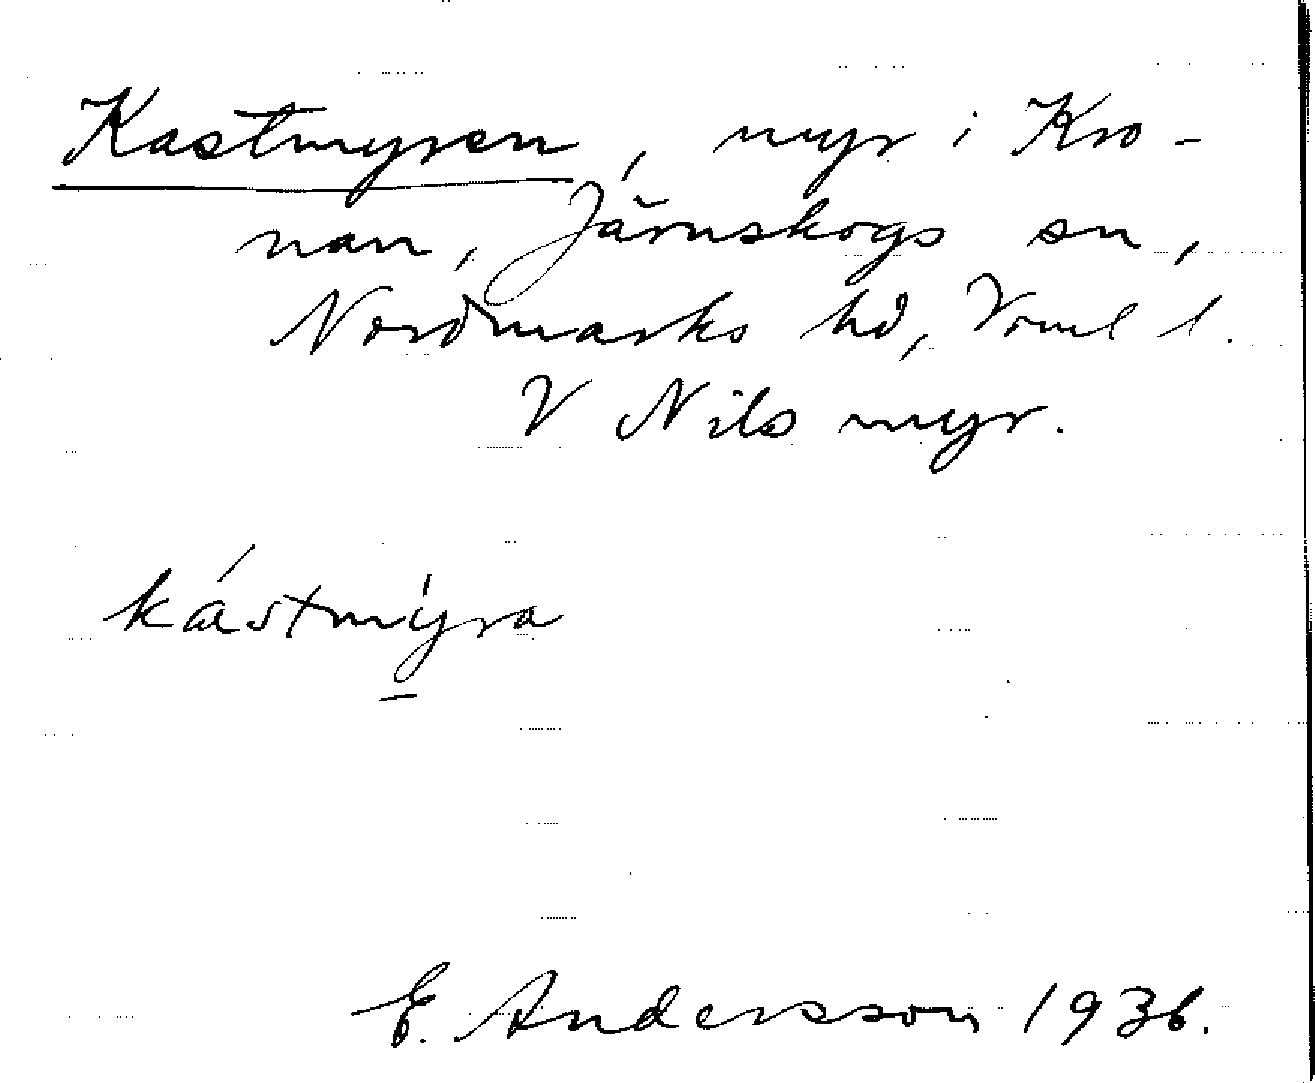 Kastmyren, myr i Kro-
nan, Järnskogs sn,
Nordmarks hd, Värml l.
V Nils myr.
kástmýra
E. Andersson 1936.